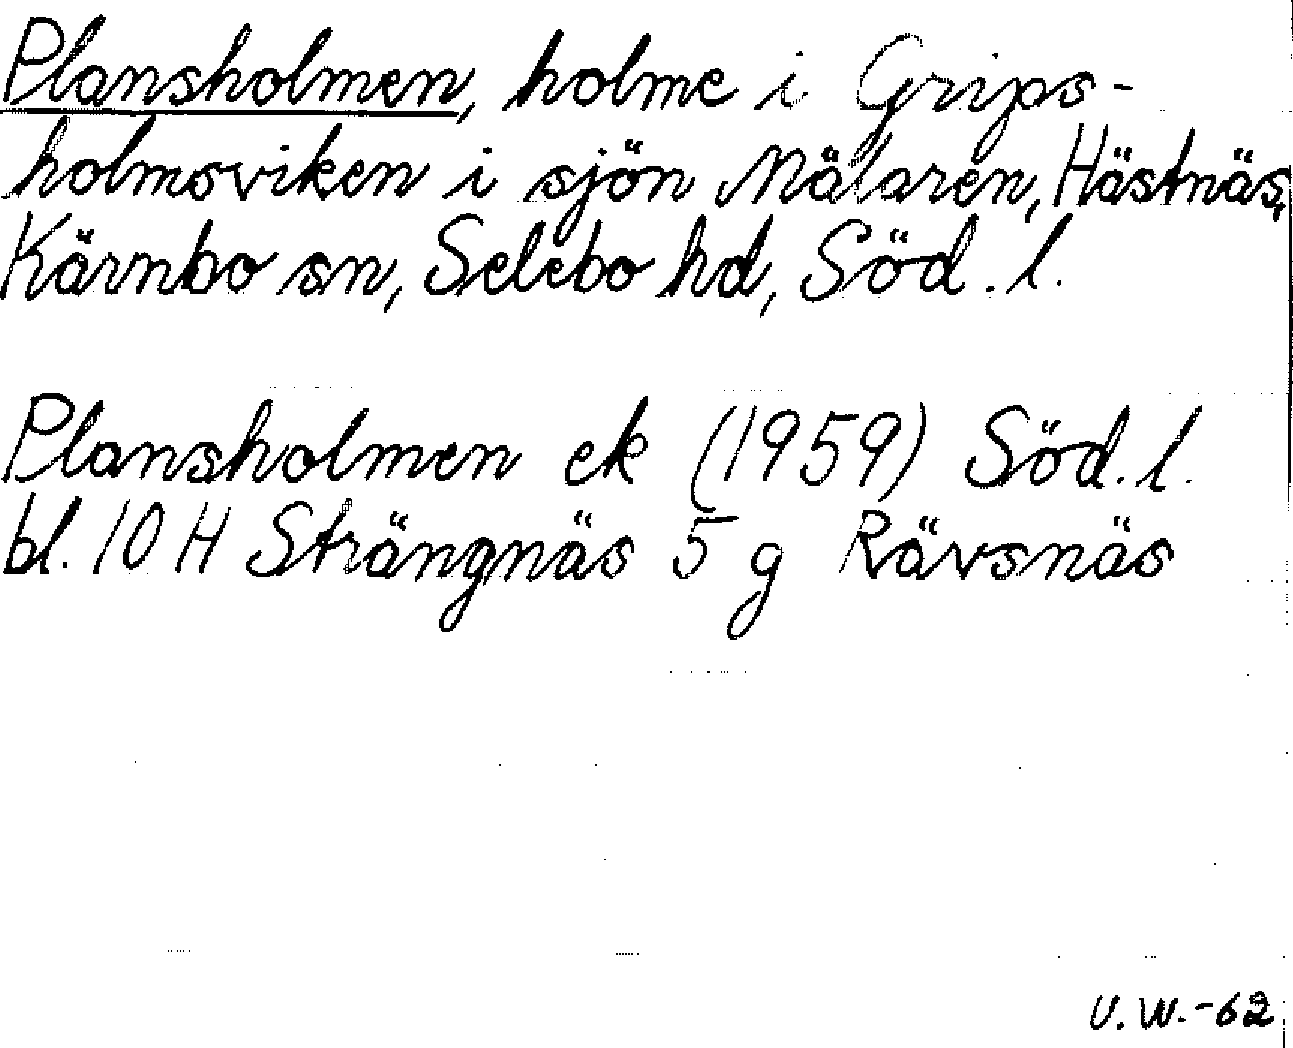 Plansholmen, holme i Grips-
holmsviken i sjön Mälaren, Hästnäs,
Kärnbo sn, Selebo hd, Söd. l.
Plansholmen ek (1959) Söd. l.
bl. 10 H Strängnäs 5 g Rävsnäs
U. W. -62